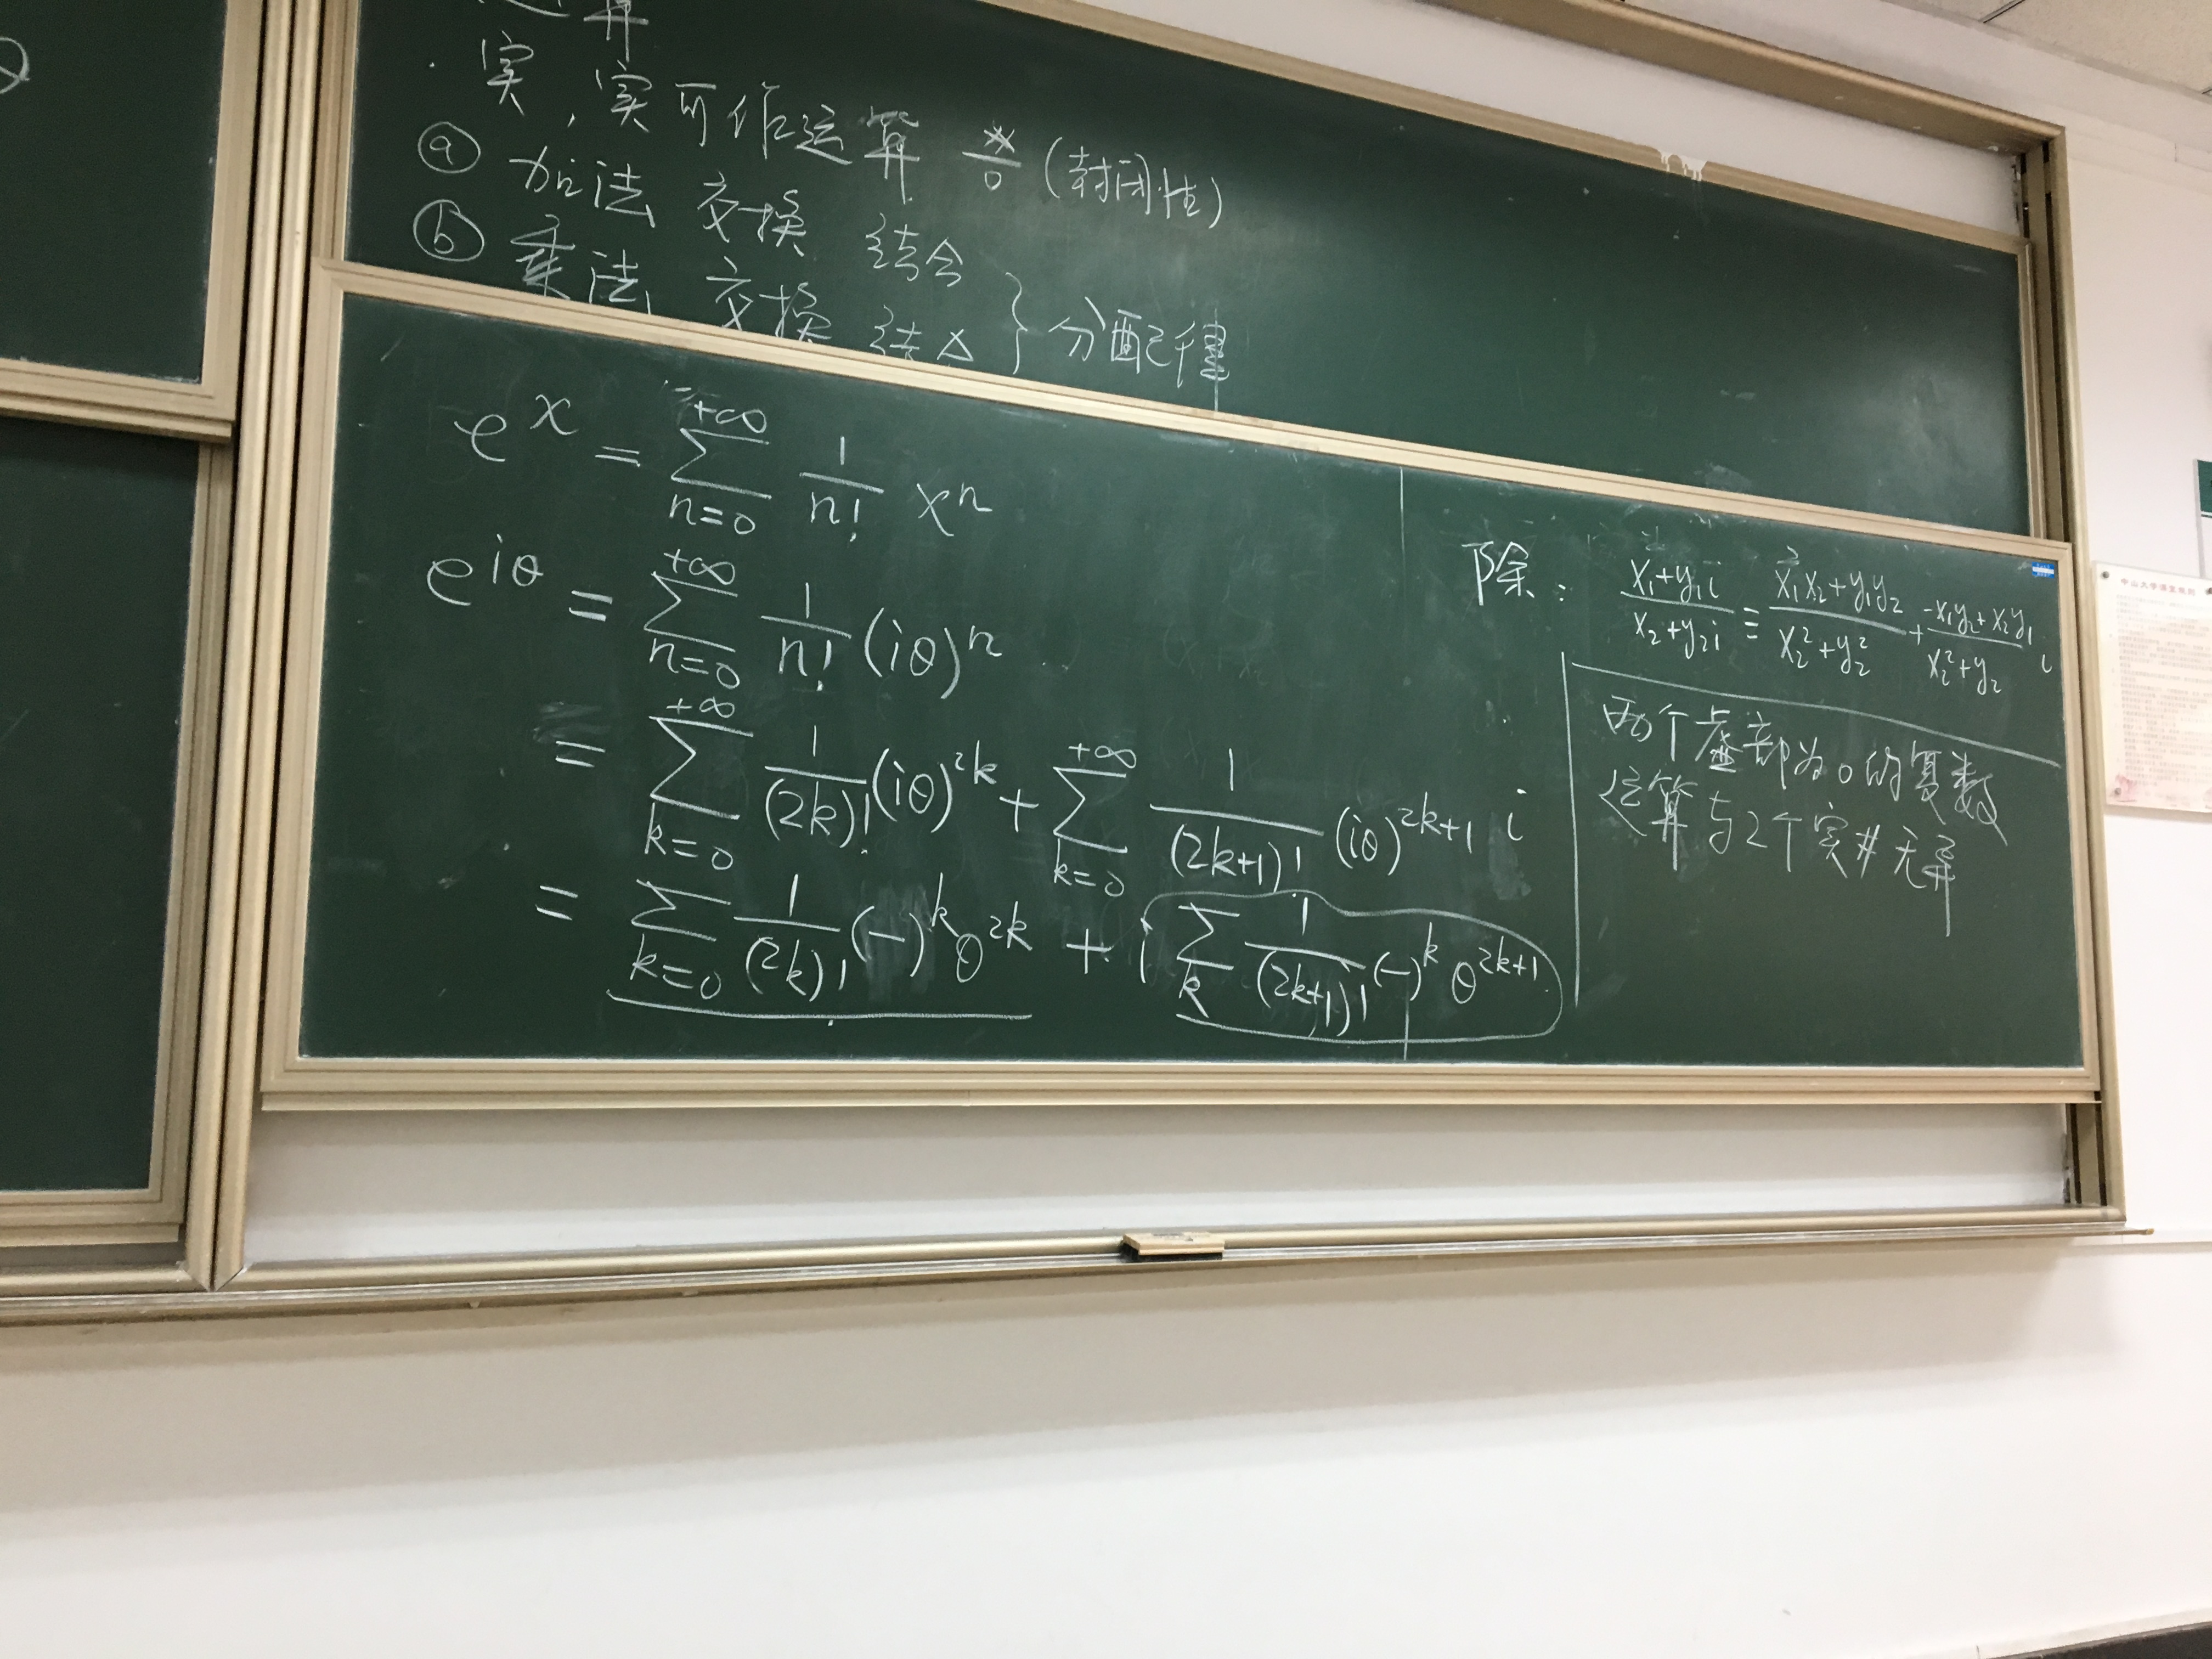 运算
实，实可作运算 *⁄0 (封闭性)
ⓐ 加法 交换 结合
ⓑ 乘法 交换 结合 } 分配律
e^x = ∑_{n=0}^{+∞} 1/n! x^n
e^{iθ} = ∑_{n=0}^{+∞} 1/n! (iθ)^n
= ∑_{k=0}^{+∞} 1/(2k)! (iθ)^{2k} + ∑_{k=0}^{+∞} 1/(2k+1)! (iθ)^{2k+1} i
= ∑_{k=0} 1/(2k)! (-)^k θ^{2k} + i ∑_k 1/(2k+1)! (-)^k θ^{2k+1}
除: (x₁+y₁i)/(x₂+y₂i) = (x₁x₂+y₁y₂)/(x₂²+y₂²) + (-x₁y₂+x₂y₁)/(x₂²+y₂) i
两个虚部为0的复数
运算与2个实#无异
中山大学课室规则